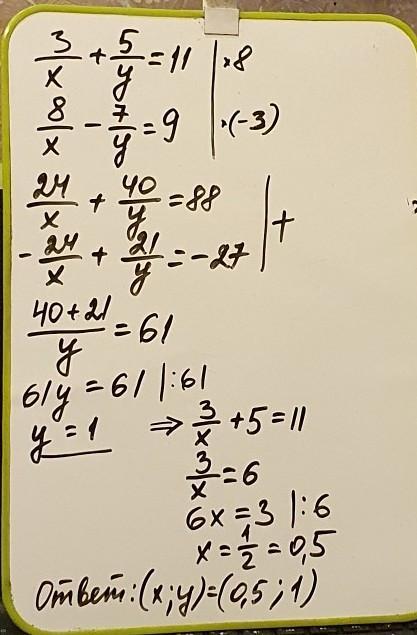 3/x + 5/y = 11 | ·8
8/x - 7/y = 9 | ·(-3)
24/x + 40/y = 88 | +
- 24/x + 21/y = -27
(40+21)/y = 61
61y = 61 |:61
y = 1 ⇒ 3/x + 5 = 11
3/x = 6
6x = 3 |:6
x = 1/2 = 0,5
Ответ: (x;y)=(0,5 ; 1)